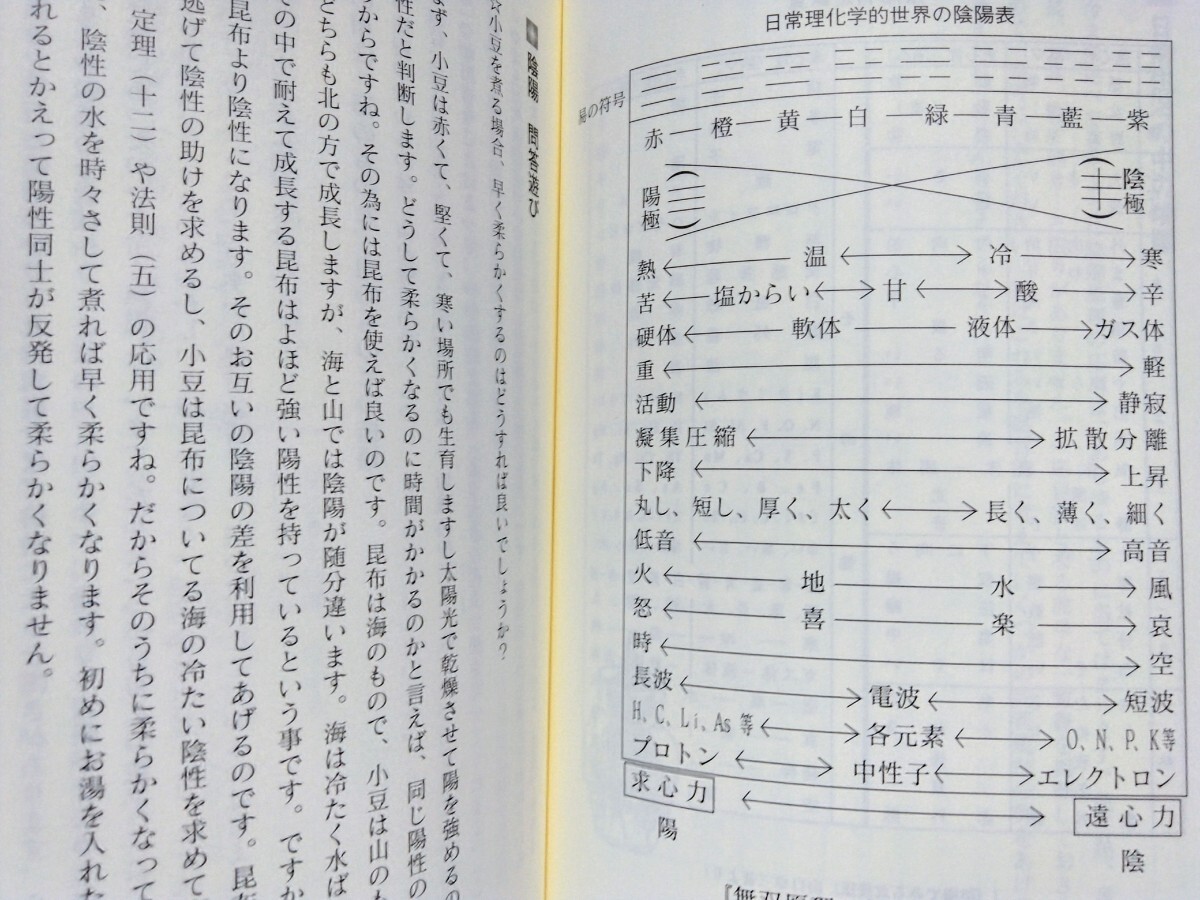 日常理化学的世界の陰陽表
易の符号
赤 橙 黄 白 緑 青 藍 紫
陽極
陰極
熱 温 冷 寒
苦 塩からい 甘 酸 辛
硬体 軟体 液体 ガス体
重 軽
活動 静寂
凝集圧縮 拡散分離
下降 上昇
丸し、短し、厚く、太く 長く、薄く、細く
低音 高音
火 地 水 風
怒 喜 楽 哀
時 空
長波 電波 短波
H、C、Li、As等 各元素 O、N、P、K等
プロトン 中性子 エレクトロン
求心力 遠心力
陽 陰
陰陽 問答遊び
☆小豆を煮る場合、早く柔らかくするのはどうすれば良いでしょうか？
ます、小豆は赤くて、堅くて、寒い場所でも生育しますし太陽光で乾燥させて陽を強めるの
性だと判断します。どうして柔らかくなるのに時間がかかるのかと言えば、同じ陽性の
からですね。その為には昆布を使えば良いのです。昆布は海のもので、小豆は山のも
どちらも北の方で成長しますが、海と山では陰陽が随分違います。海は冷たく水ば
の中で耐えて成長する昆布はよほど強い陽性を持っているという事です。ですか
昆布より陰性になります。そのお互いの陰陽の差を利用してあげるのです。昆
逃げて陰性の助けを求めるし、小豆は昆布についてる海の冷たい陰性を求めて
定理（十二）や法則（五）の応用ですね。だからそのうちに柔らかくなって
、陰性の水を時々さして煮れば早く柔らかくなります。初めにお湯を入れた
れるとかえって陽性同士が反発して柔らかくなりません。